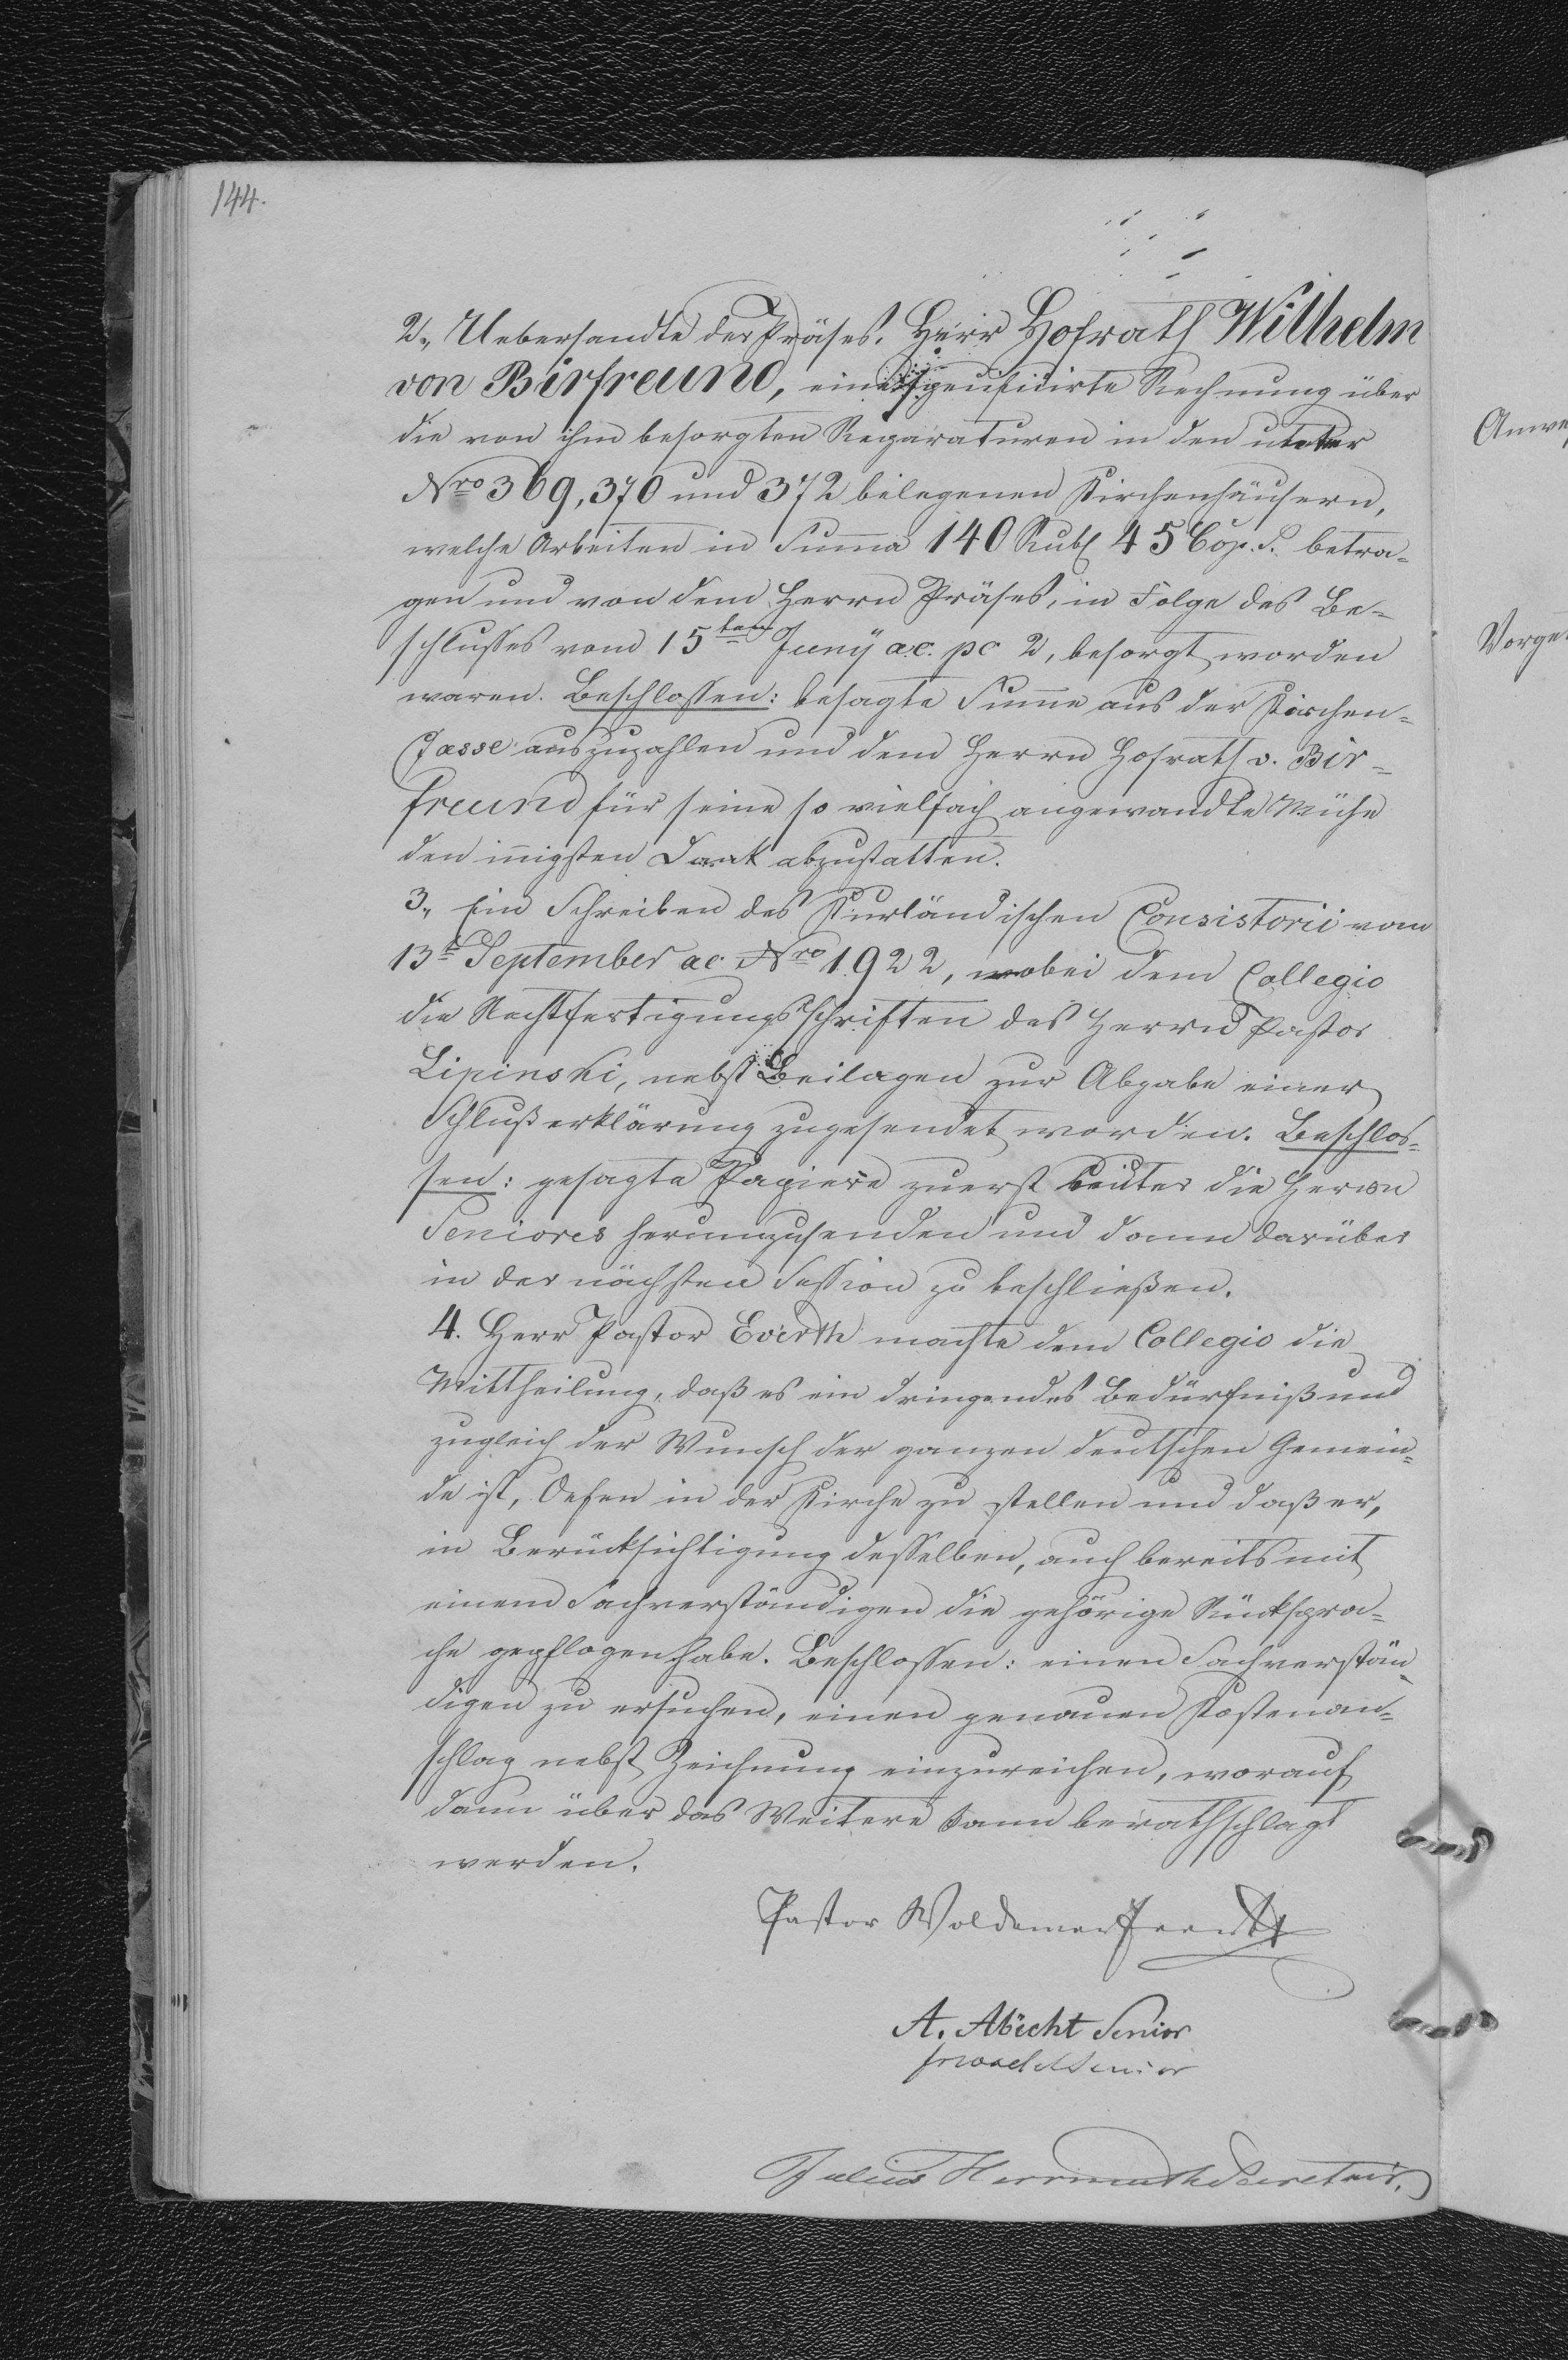 144.
2., Uebersandte der Präses, Herr Hofrath Wilhelm
von Birfreund, eine specificirte Rechnung über
die von ihm besorgten Reparaturen in den unter
Nro 369, 370 und 372 belegenen Kirchenhäusern,
welche Arbeiten in Summa 140 Rub 45 Cop. S. betra-
gen und von dem Herrn Präses, in Folge des Be-
schlusses vom 15ten Juny a.c. pc 2, besorgt worden
waren. Beschlossen: besagte Summe aus der Kirchen-
Casse auszuzahlen und dem Herrn Hofrath v. Bir-
freund für seine so vielfach angewandte Mühe
den innigsten Dank abzustatten.
3., Ein Schreiben des Kurländischen Consistorii vom
13t September ac Nro 1922, wobei dem Collegio
die Rechtfertigungsschriften des Herrn Pastor
Lipinski, nebst Beilagen zur Abgabe einer
Schlußerklärung zugesendet worden. Beschlos-
sen: gesagte Papiere zuerst unter die Herrn
Seniores herumzusenden und dann darüber
in der nächsten Session zu beschließen.
4. Herr Pastor Everth machte dem Collegio die
Mittheilung, daß es ein dringendes Bedürfniß und
zugleich der Wunsch der ganzen deutschen Gemein-
de ist, Oefen in der Kirche zu stellen und daß er,
in Berücksichtigung desselben, auch bereits mit
einem Sachverständigen die gehörige Rückspra-
che gepflogen habe. Beschlossen: einen Sachverstän-
digen zu ersuchen, einen genauen Kostenan-
schlag nebst Zeichnung einzureichen, worauf
dann über das Weitere kann berathschlagt
werden.
Pastor Woldemar
A. Abicht Senior
Senior
Julius Herrmuth Secretair.
Anwe
Vorget